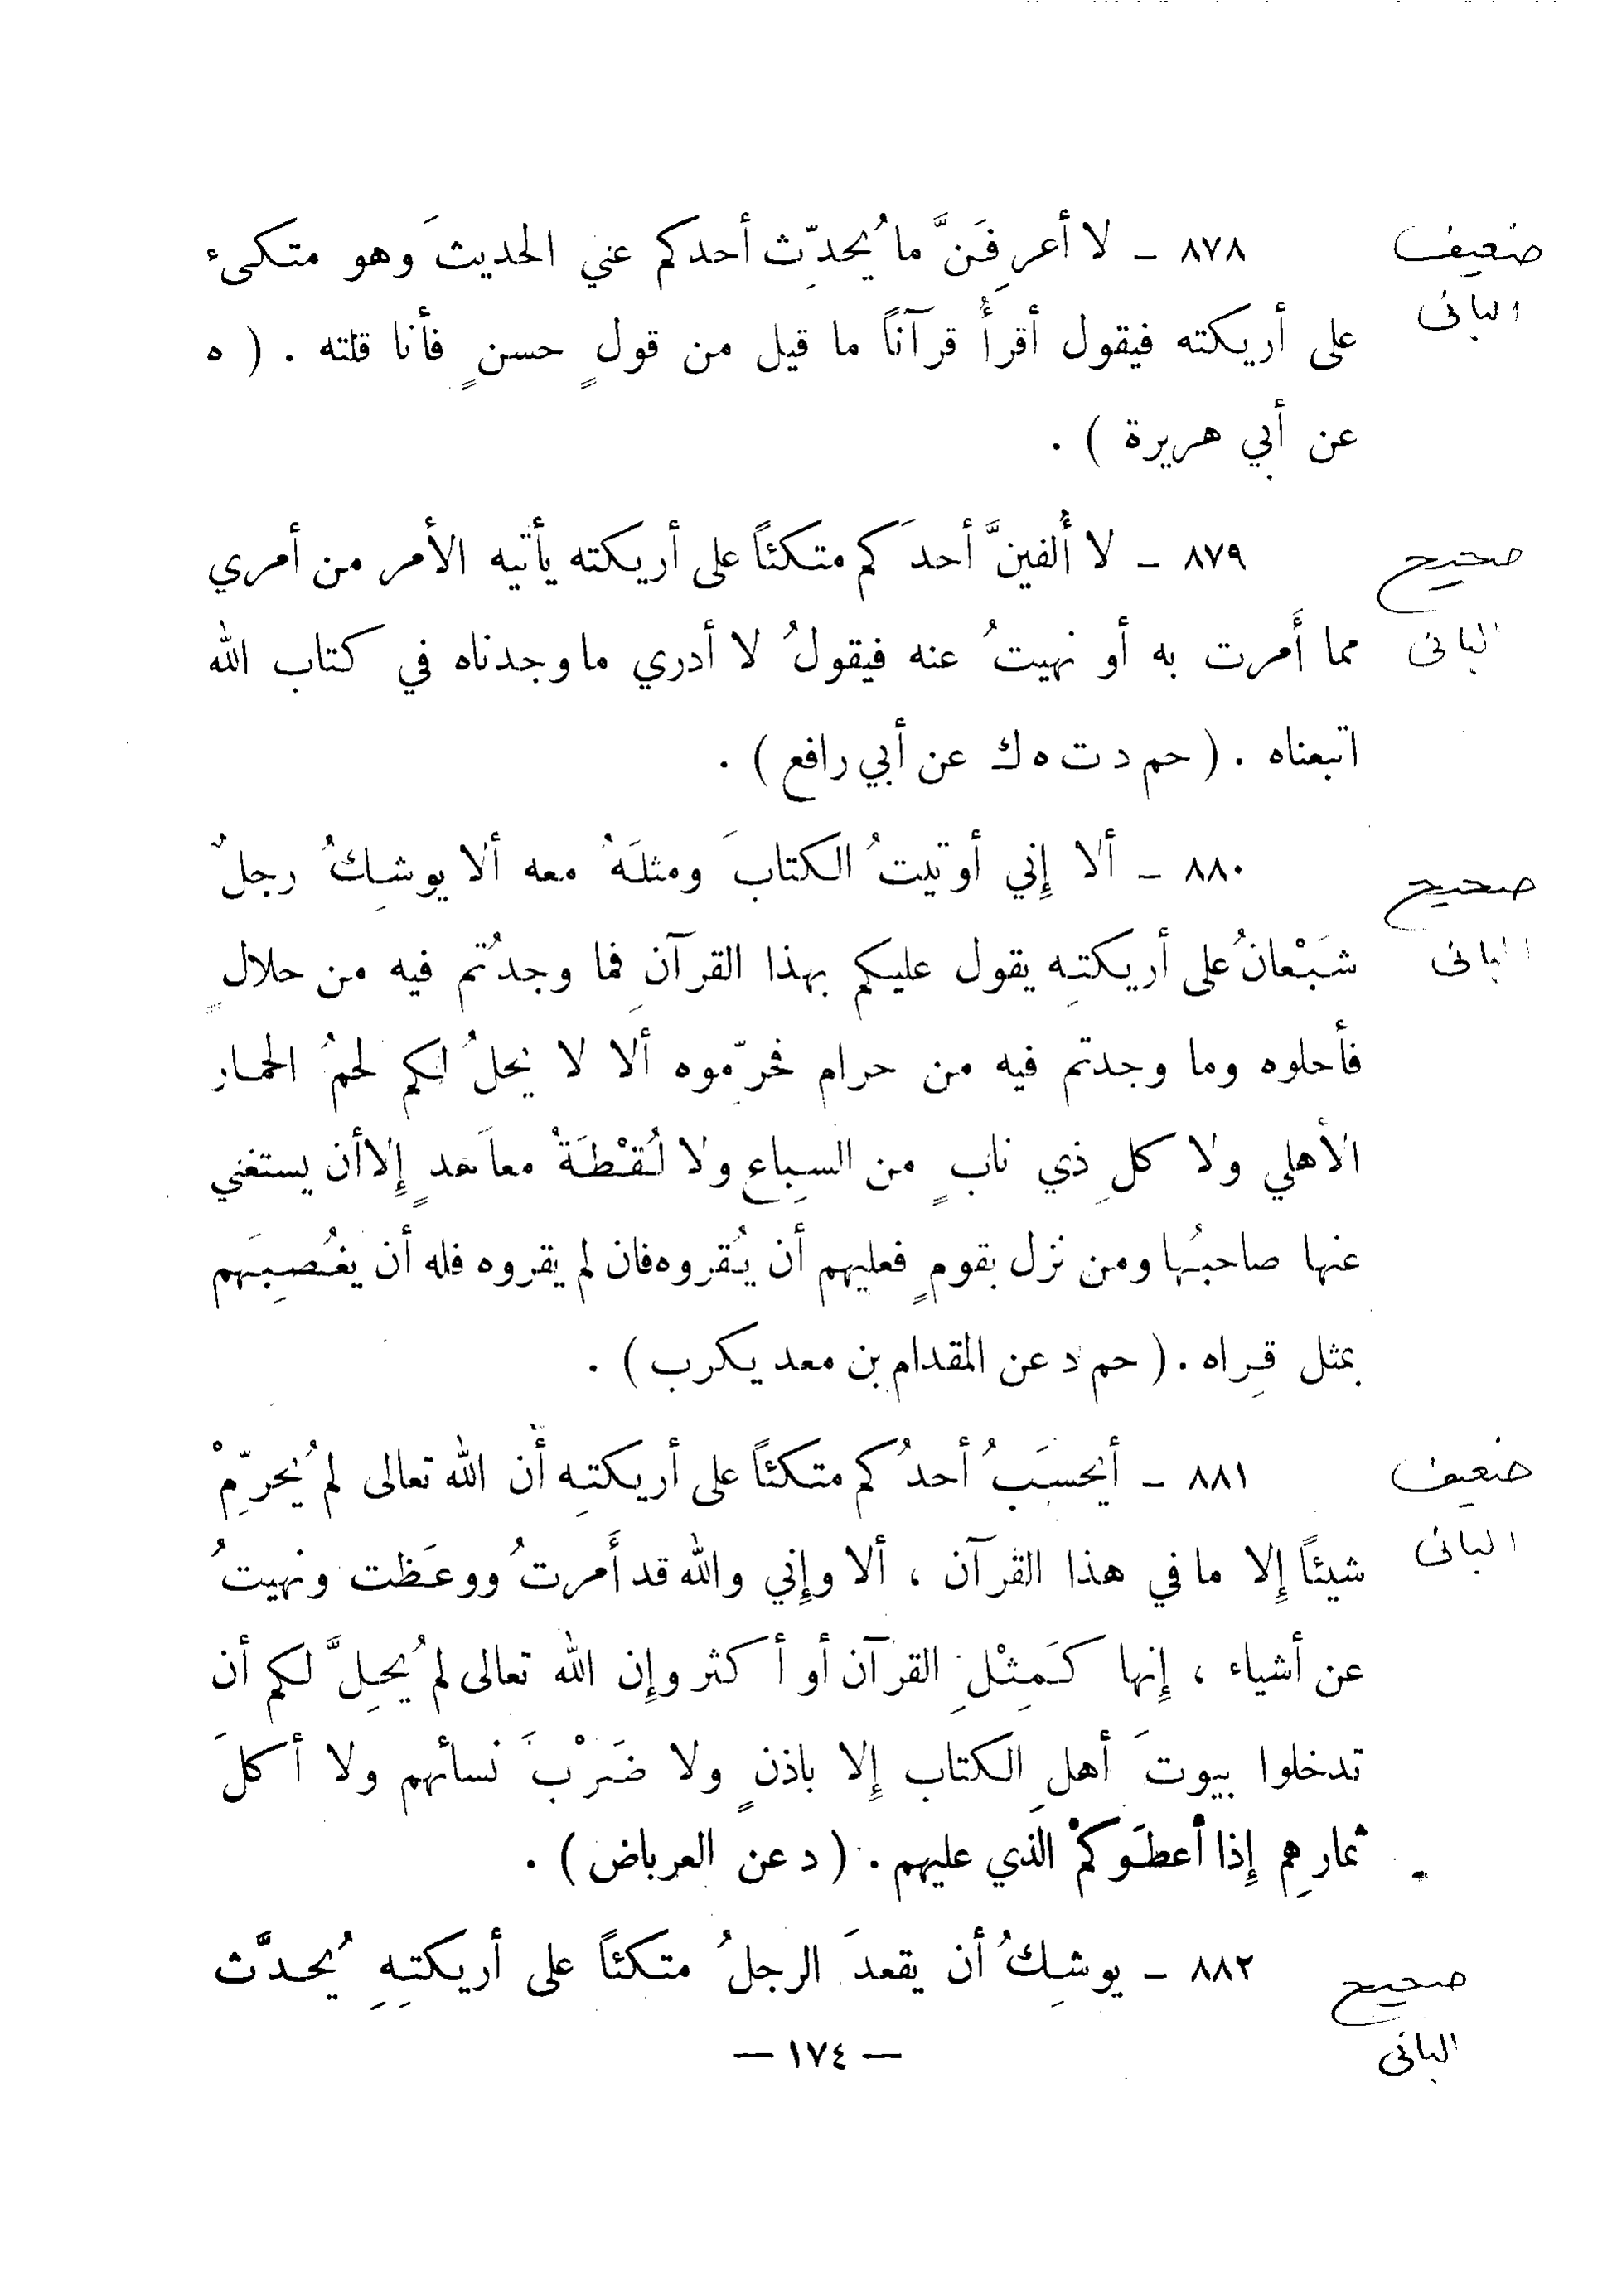 ضعيف
البانى
٨٧٨ - لا أعرِفَنَّ ما يُحدّث أحدكم عني الحديثَ وهو متكىء
على أريكته فيقول أقرأُ قرآناً ما قيل من قولٍ حسنٍ فأنا قلته . ( ه
عن أبي هريرة ) .
صحيح
البانى
٨٧٩ - لا أُلفينَّ أحدَكم متكئاً على أريكته يأتيه الأمر من أمري
مما أَمرت به أو نهيتُ عنه فيقولُ لا أدري ما وجدناه في كتاب الله
اتبعناه . ( حم د ت ه ك عن أبي رافع ) .
صحيح
البانى
٨٨٠ - ألا إِني أوتيتُ الكتابَ ومثلَهُ معه ألا يوشِكُ رجلٌ
شَبْعانُ على أريكتِه يقول عليكم بهذا القرآنِ فما وجدُتم فيه من حلالٍ
فأحلوه وما وجدتم فيه من حرام فحرّموه ألا لا يحلُ لكم لحمُ الحمار
الأهلي ولا كلِ ذي نابٍ من السباع ولا لُقْطَةُ معاهَدٍ إِلا أن يستغني
عنها صاحبُها ومن نزل بقومٍ فعليهم أن يُقروه فان لم يقروه فله أن يغُصِبَهم
بمثل قِراه . ( حم د عن المقدام بن معد يكرب ) .
ضعيف
البانى
٨٨١ - أيحسَبُ أحدُكم متكئاً على أريكتِه أن الله تعالى لم يُحرّمْ
شيئاً إِلا ما في هذا القرآن ، ألا وإِني والله قد أَمرتُ ووعَظت ونهيتُ
عن أشياء ، إِنها كَمِثْلِ القرآن أو أكثر وإِن الله تعالى لم يُحِلَّ لكم أن
تدخلوا بيوتَ أهلِ الكتاب إِلا باذنٍ ولا ضَرْبَ نسأئهم ولا أكلَ
ثمارِهم إِذا أعطَوكمْ الذي عليهم . ( د عن العرباض ) .
صحيح
البانى
٨٨٢ - يوشِكُ أن يقعدَ الرجلُ متكئاً على أريكتِهِ يُحدَّث
— ١٧٤ —